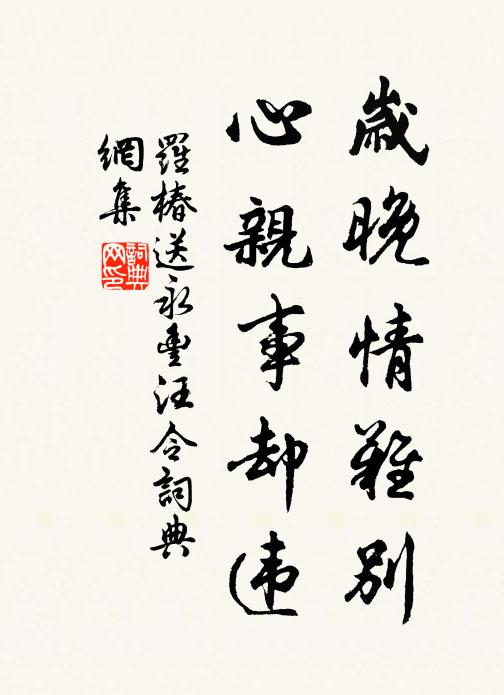 歲晚情難別
心親事却违
羅椿送永豐汪令詞典
網集
詞典网印